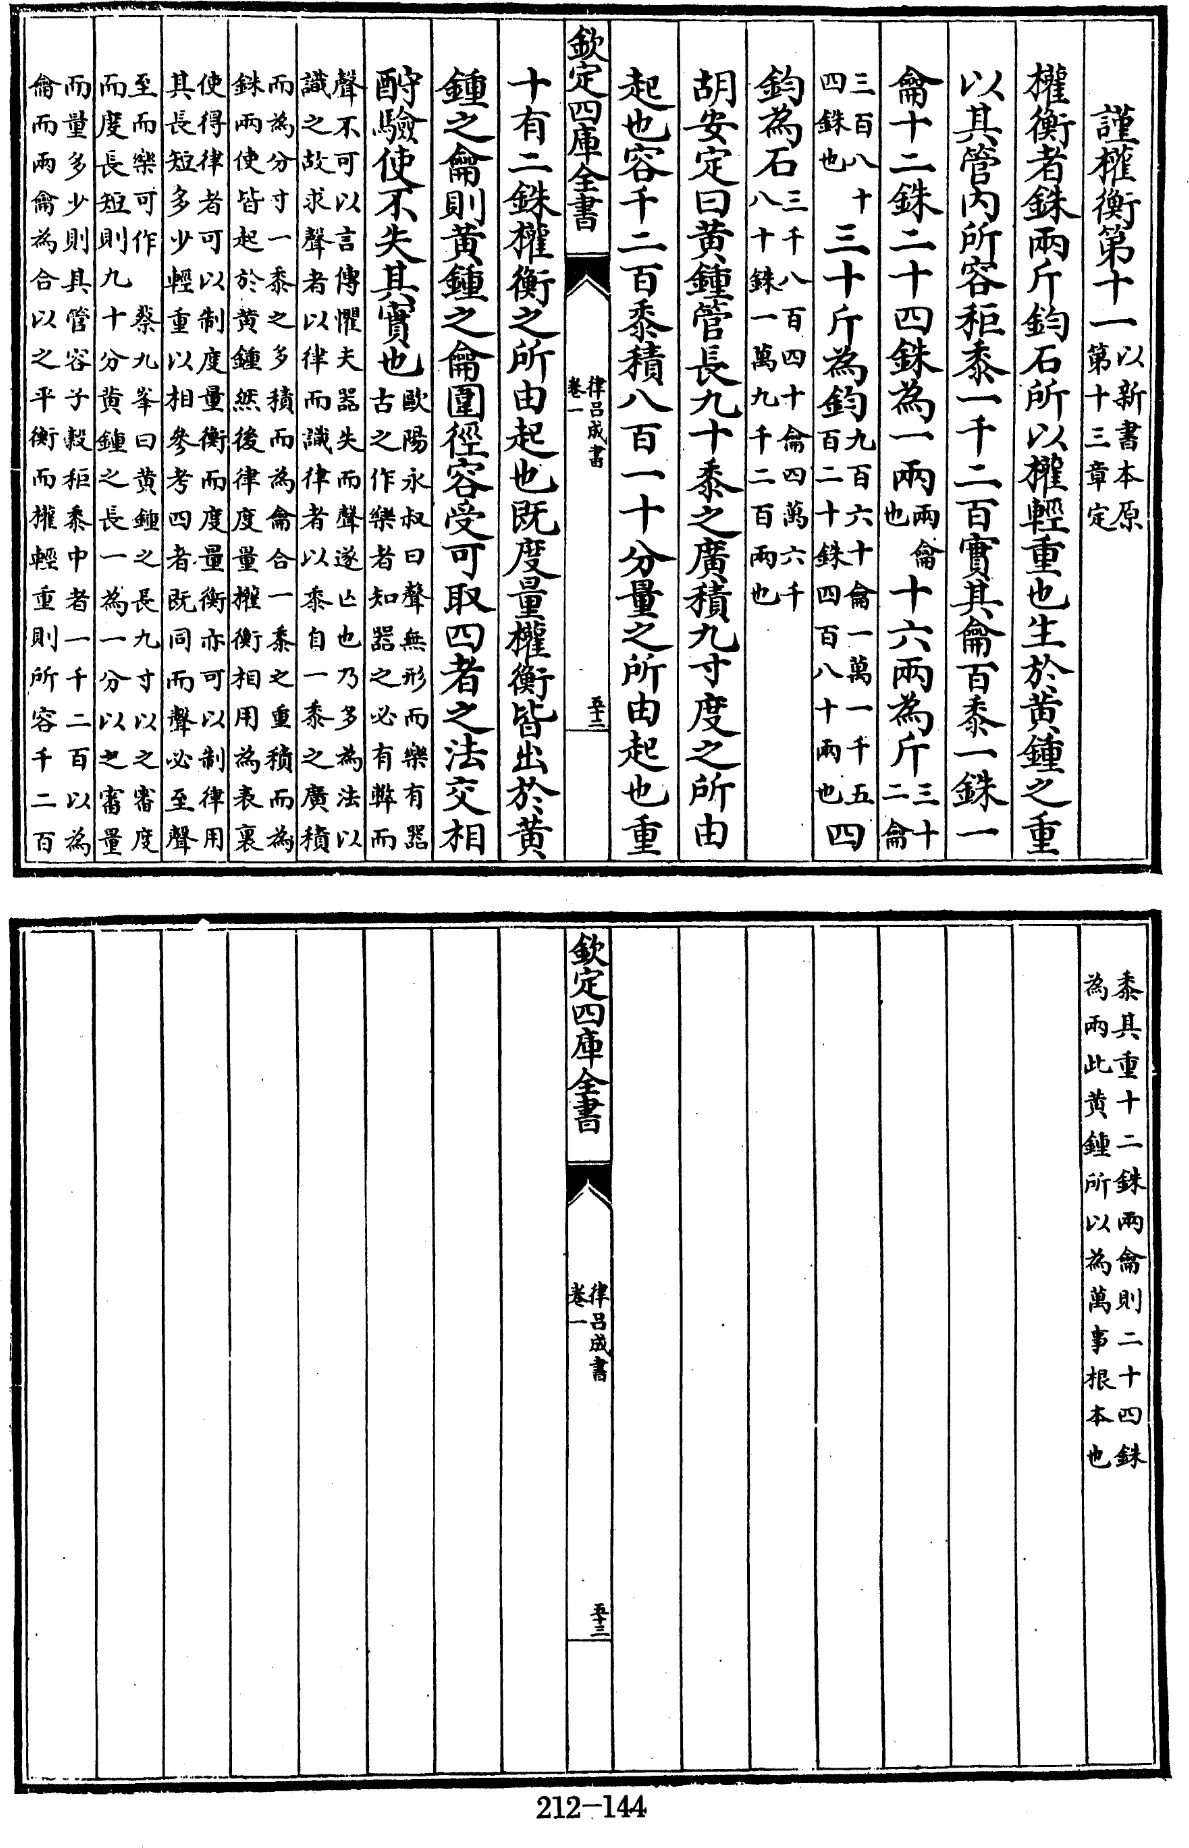 謹權衡第十一以新書本原
第十三章定
權衡者銖兩斤鈞石所以權輕重也生於黃鍾之重
以其管内所容秬黍一千二百實其龠百黍一銖一
龠十二銖二十四銖為一兩兩龠
也十六兩為斤三十
二龠
三百八十
四銖也三十斤為鈞九百六十龠一萬一千五
百二十銖四百八十兩也四
鈞為石三千八百四十龠四萬六千
八十銖一萬九千二百兩也
胡安定曰黃鍾管長九十黍之廣積九寸度之所由
起也容千二百黍積八百一十分量之所由起也重
欽定四庫全書
律呂成書
卷一
五十二
十有二銖權衡之所由起也既度量權衡皆出於黃
鍾之龠則黃鍾之龠圍徑容受可取四者之法交相
酧驗使不失其實也歐陽永叔曰聲無形而樂有器
古之作樂者知器之必有弊而
聲不可以言傳懼夫器失而聲遂亡也乃多為法以
識之故求聲者以律而識律者以黍自一黍之廣積
而為分寸一黍之多積而為龠合一黍之重積而為
銖兩使皆起於黃鍾然後律度量權衡相用為表裏
使得律者可以制度量衡而度量衡亦可以制律用
其長短多少輕重以相參考四者既同而聲必至聲
至而樂可作 蔡九峯曰黃鍾之長九寸以之審度
而度長短則九十分黃鍾之長一為一分以之審量
而量多少則具管容子穀秬黍中者一千二百以為
龠而兩龠為合以之平衡而權輕重則所容千二百
黍其重十二銖兩龠則二十四銖
為兩此黃鍾所以為萬事根本也
欽定四庫全書
律呂成書
卷一
五十三
212-144